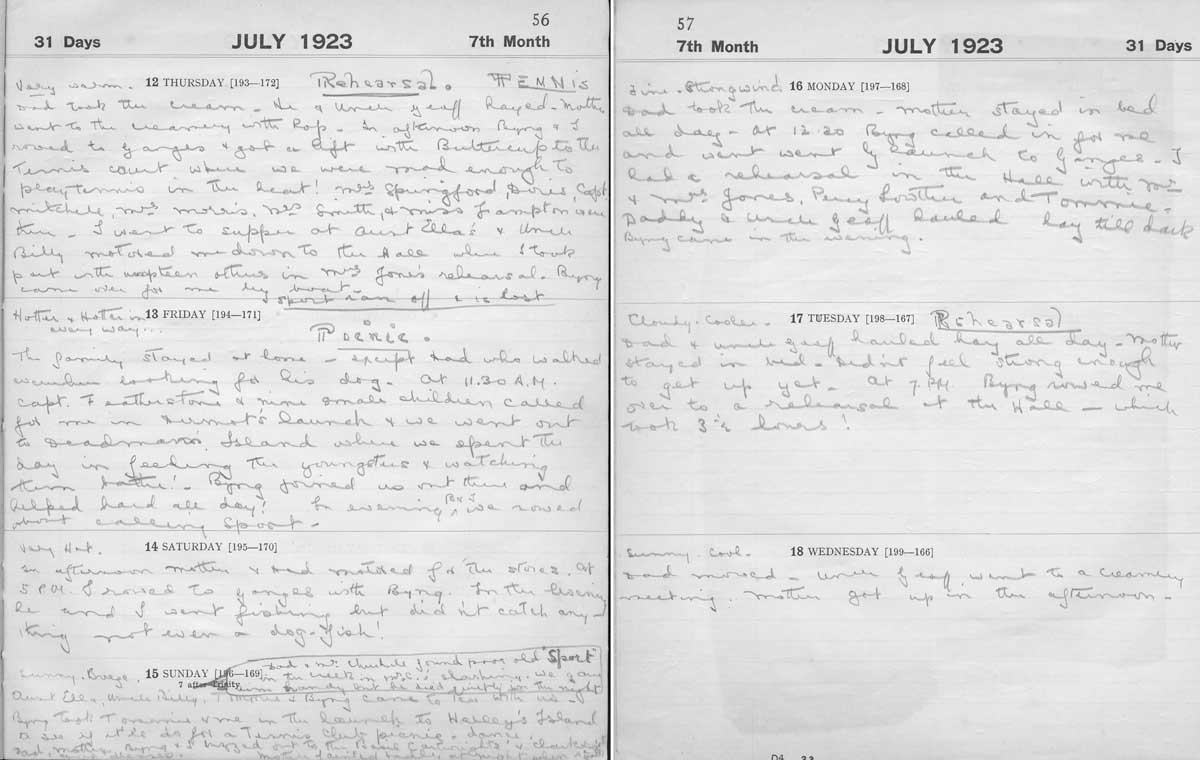 56
31 Days JULY 1923 7th Month
Very warm. 12 THURSDAY [193—172] Rehearsal. TENNIS
Dad took the cream - He & Uncle Geoff hayed - Mother
went to the creamery with Pop - In afternoon Byng & I
rowed to Ganges & got a lift with Buttercup to the
Tennis court where we were mad enough to
play tennis in the heat! Mrs Springford, Doris, Capt.
Mitchell, Mrs Morris, Mrs Smith, & Miss were
there - I went to supper at Aunt Ella's & Uncle
Billy motored me down to the Hall where I took
part with umpteen others in Mrs Jones rehearsal. Byng
came over for me by boat -
Sport ran off & is lost
Hotter & Hotter in 13 FRIDAY [194—171]
every way...
Picnic.
The family stayed at home - except Dad who walked
looking for his dog. At 11.30 A.M.
Capt. Featherstone & nine small children called
for me in launch & we went out
to Deadmans Island where we spent the
day in feeding the youngsters & watching
them bathe! - Byng joined us out there and
helped hard all day! In evening B & I we rowed
about calling Sport -
Very Hot. 14 SATURDAY [195—170]
In afternoon Mother & Dad motored for the stores. At
5 P.M. I rowed to Ganges with Byng. In the evening
he and I went fishing but did n't catch any-
thing not even a dog-fish!
Sunny. Breeze. 15 SUNDAY [196—169]
7 after Trinity
Dad & Mr found poor old "Sport"
in the creek in slashing, we gave
him brandy but he died quietly in the night
Aunt Ella, Uncle Billy, Tommie & Byng came to tea with us -
Byng took Tommie & me in the launch to Island
to see if it'd do for a Tennis Club picnic - dance.
Dad, Mother, Byng & I out to the
57
7th Month JULY 1923 31 Days
Fine. Strong wind 16 MONDAY [197—168]
Dad took the cream - Mother stayed in bed
all day - At 12.20 Byng called in for me
and went went by launch to Ganges - I
had a rehearsal in the Hall with Mr
& Mrs Jones, Percy Lowther and Tommie -
Daddy & Uncle Geoff hauled hay till dark
Byng came in the evening.
Cloudy. Cooler. 17 TUESDAY [198—167] Rehearsal
Dad & Uncle Geoff hauled hay all day - Mother
stayed in bed - didn't feel strong enough
to get up yet - At 7 P.M. Byng rowed me
over to a rehearsal at the Hall - which
took 3½ hours!
Sunny. Cool. 18 WEDNESDAY [199—166]
Dad mowed - Uncle Geoff went to a Creamery
meeting. Mother got up in the afternoon -